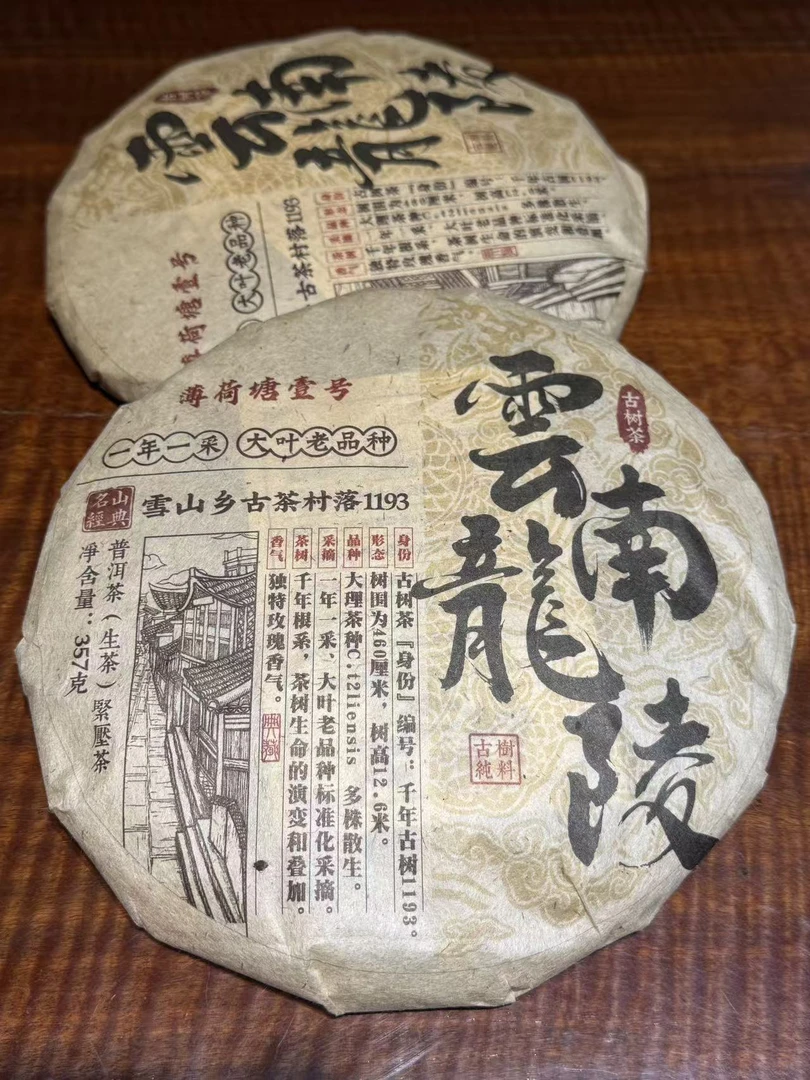 雲南龍陵
古树茶
古樹純料
薄荷塘壹号
一年一采 大叶老品种
名山經典
雪山乡古茶村落1193
身份 古树茶『身份』编号：千年古树1193。
形态 树围为460厘米，树高12.6米。
品种 大理茶种C.t2liensis 多株散生。
采摘 一年一采、大叶老品种标准化采摘。
茶树 千年根系，茶树生命的演变和叠加。
香气 独特玫瑰香气。
典藏
普洱茶（生茶）緊壓茶
淨含量：357克
雲南龍陵
荷塘壹号
大叶老品种
古茶村落1193